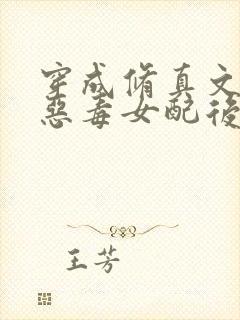 穿成修真文
惡毒女配後
王芳